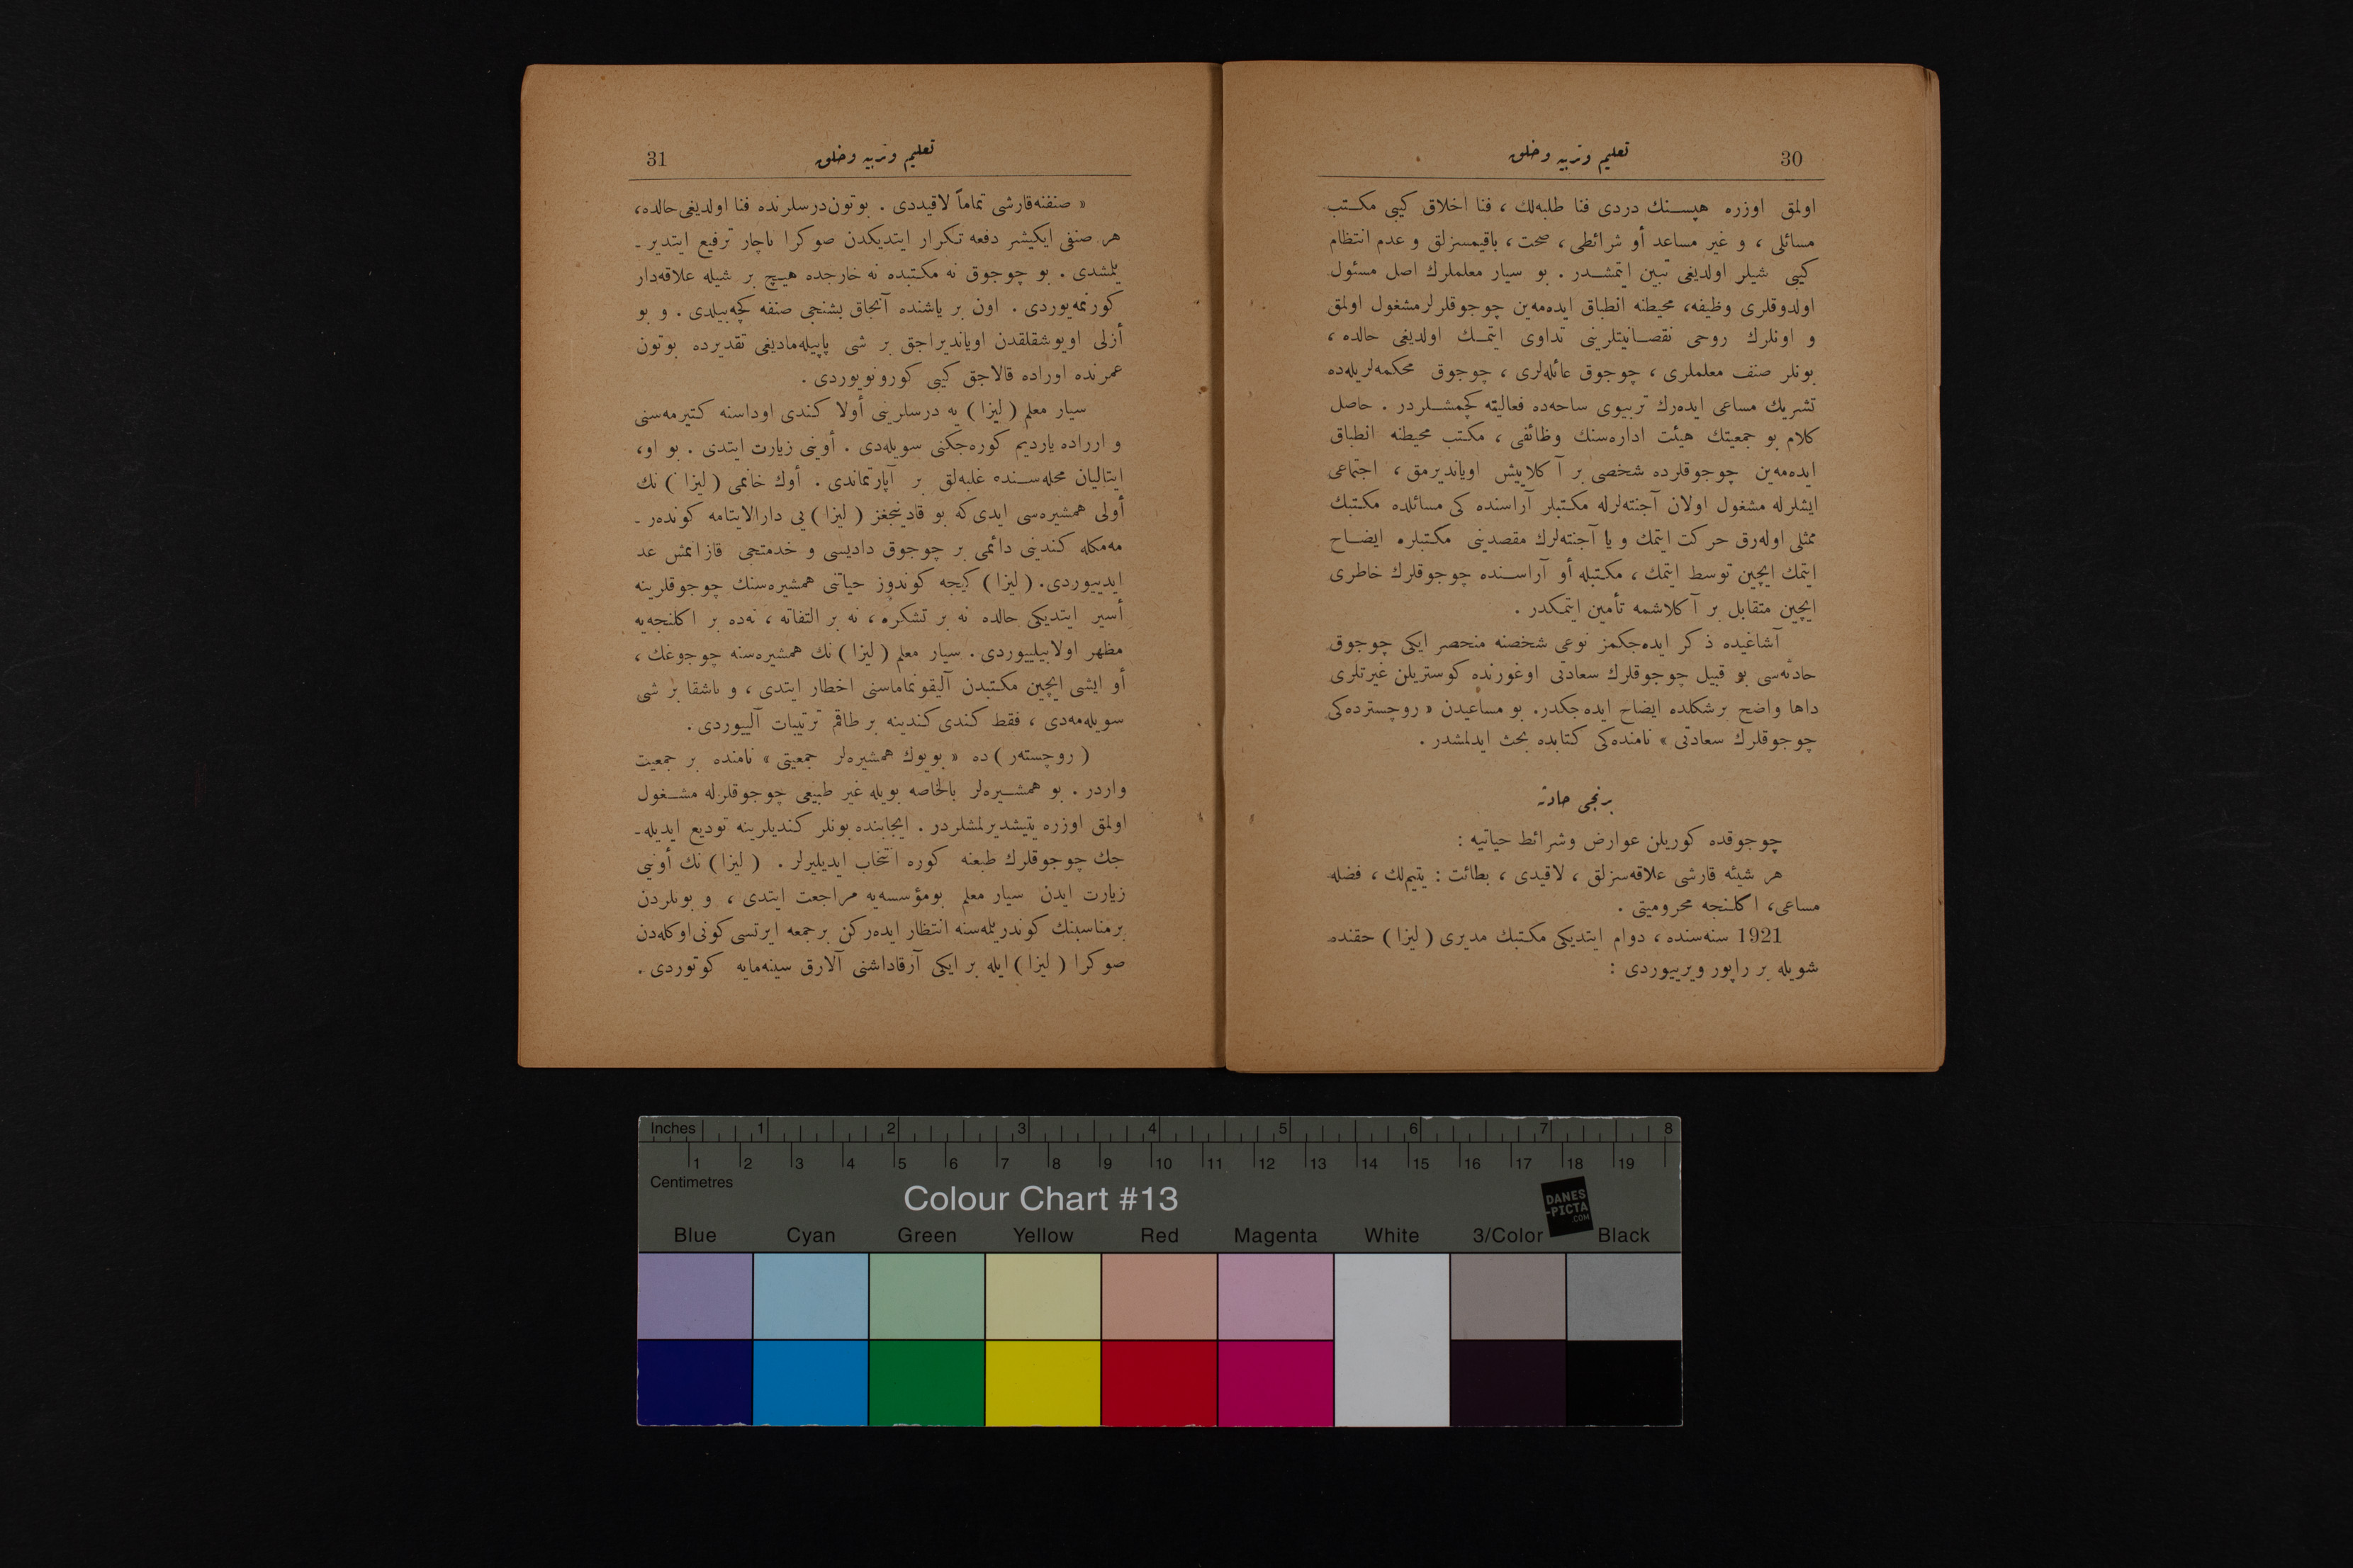 30
تعليم وتربيه وخلق
اولمق اوزره هپسنك دردى فنا طلبه‌لك ، فنا اخلاق كيى مكتب
مسائلى ، و غير مساعد أو شرائطى ، صحت ، باقيمسزلق و عدم انتظام
كيى شيلر اولديغى تبين ايتمشدر . بو سيار معلملرك اصل مسئول
اولدوقلرى وظيفه، محيطنه انطباق ايده‌مه‌ين چوجوقلرله مشغول اولمق
و اونلرك روحى نقصانيتلرينى تداوى ايتمك اولديغى حالده ،
بونلر صنف معلملرى ، چوجوق عائله‌لرى ، چوجوق محكمه‌لريله‌ده
تشريك مساعى ايده‌رك تربيوى ساحه‌ده فعاليته كچمشلردر . حاصل
كلام بو جمعيتك هيئت اداره‌سنك وظائفى ، مكتب محيطنه انطباق
ايده‌مه‌ين چوجوقلرده شخصى بر آكلاييش اوياندير‌مق ، اجتماعى
ايشلرله مشغول اولان آجنته‌لرله مكتبلر آراسنده كى مسائلده مكتبك
ممثلى اوله‌رق حركت ايتمك و يا آجنته‌لرك مقصدينى مكتبلره ايضاح
ايتمك ايچين توسط ايتمك ، مكتبله أو آراسنده چوجوقلرك خاطرى
ايچين متقابل بر آكلاشمه تأمين ايتمكدر .
آشاغيده ذكر ايده‌جكمز نوعى شخصنه منحصر ايكى چوجوق
حادثه‌سى بو قبيل چوجوقلرك سعادتى اوغورنده كوستريلن غيرتلرى
داها واضح بر شكلده ايضاح ايده‌جكدر. بو مساعيدن « روچسترده‌كى
چوجوقلرك سعادتى » نامنده‌كى كتابده بحث ايدلمشدر .
برنجى حادثه
چوجوقده كوريلن عوارض وشرائط حياتيه :
هر شيئه قارشى علاقه‌سزلق ، لاقيدى ، بطائت : يتيملك ، فضله
مساعى، اكلنجه محروميتى .
1921 سنه‌سنده ، دوام ايتديكى مكتبك مديرى ( ليزا ) حقنده
شويله بر راپور ويرييوردى :
31
تعليم وتربيه وخلق
« صنفنه قارشى تماماً لاقيددى . بوتون درسلرنده فنا اولديغى حالده،
هر صنفى ايكيشر دفعه تكرار ايتديكدن صوكرا ناچار ترفيع ايتدير ـ
يلمشدى . بو چوجوق نه مكتبده نه خارجده هيچ بر شيله علاقه‌دار
كورنمه‌يوردى . اون بر ياشنده آنجاق بشنجى صنفه كچه‌بيلدى . و بو
أزلى اويوشقلقدن اويانديراجق بر شى ياپيله‌ماديغى تقديرده بوتون
عمرنده اوراده قالاجق كيى كورونويوردى .
سيار معلم ( ليزا ) يه درسلرينى أولا كندى اوداسنه كتيرمه‌سنى
و ارراده يارديم كوره‌جكنى سويله‌دى . أوينى زيارت ايتدى . بو او،
ايتاليان محله‌سنده غلبه‌لق بر آپارتماندى . أوك خانمى ( ليزا ) نك
أولى همشيره‌سى ايدى كه بو قادينجغز ( ليزا ) يى دارالايتامه كونده‌ر ـ
مه‌مكله كندينى دائمى بر چوجوق داديسى و خدمتجى قازانمش عد
ايدييوردى. ( ليزا ) كيجه كوندوز حياتنى همشيره‌سنك چوجوقلرينه
أسير ايتديكى حالده نه بر تشكره ، نه بر التفاته ، نه‌ده بر اكلنجه‌يه
مظهر اولابيلييوردى . سيار معلم ( ليزا ) نك همشيره‌سنه چوجوغك ،
أو ايشى ايچين مكتبدن آليقونماماسنى اخطار ايتدى ، و باشقا بر شى
سويله‌مه‌دى ، فقط كندى كندينه بر طاقم ترتيبات آلييوردى .
( روچسته‌ر ) ده « بويوك همشيره‌لر جمعيتى » نامنده بر جمعيت
واردر . بو همشيره‌لر بالخاصه بويله غير طبيعى چوجوقلرله مشغول
اولمق اوزره يتيشديرلمشلردر . ايجابنده بونلر كنديلرينه توديع ايديله‌ـ
جك چوجوقلرك طبعنه كوره انتخاب ايديليرلر . ( ليزا ) نك أوينى
زيارت ايدن سيار معلم بو مؤسسه‌يه مراجعت ايتدى ، و بونلردن
بر مناسبنك كوندريلمه‌سنه انتظار ايده‌ركن بر جمعه ايرتسى كونى اوكله‌دن
صوكرا ( ليزا ) ايله بر ايكى آرقاداشنى آلارق سينه‌مايه كوتوردى .
Inches 1 2 3 4 5 6 7 8
1 2 3 4 5 6 7 8 9 10 11 12 13 14 15 16 17 18 19
Centimetres
Colour Chart #13
DANES
-PICTA
.COM
Blue Cyan Green Yellow Red Magenta White 3/Color Black